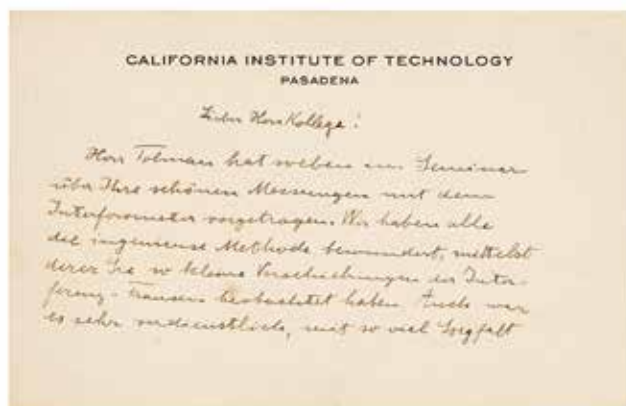 CALIFORNIA INSTITUTE OF TECHNOLOGY
PASADENA
Lieber Herr Kollege!
Herr Tolman hat soeben im Seminar
über Ihre schönen Messungen mit dem
Interferometer vorgetragen. Wir haben alle
die ingeniense Methode bewundert, mittelst
derer Sie so kleine Verschiebungen der Inter-
ferenz-Fransen beobachtet haben. Auch war
es sehr verdienstlich, mit so viel Sorgfalt